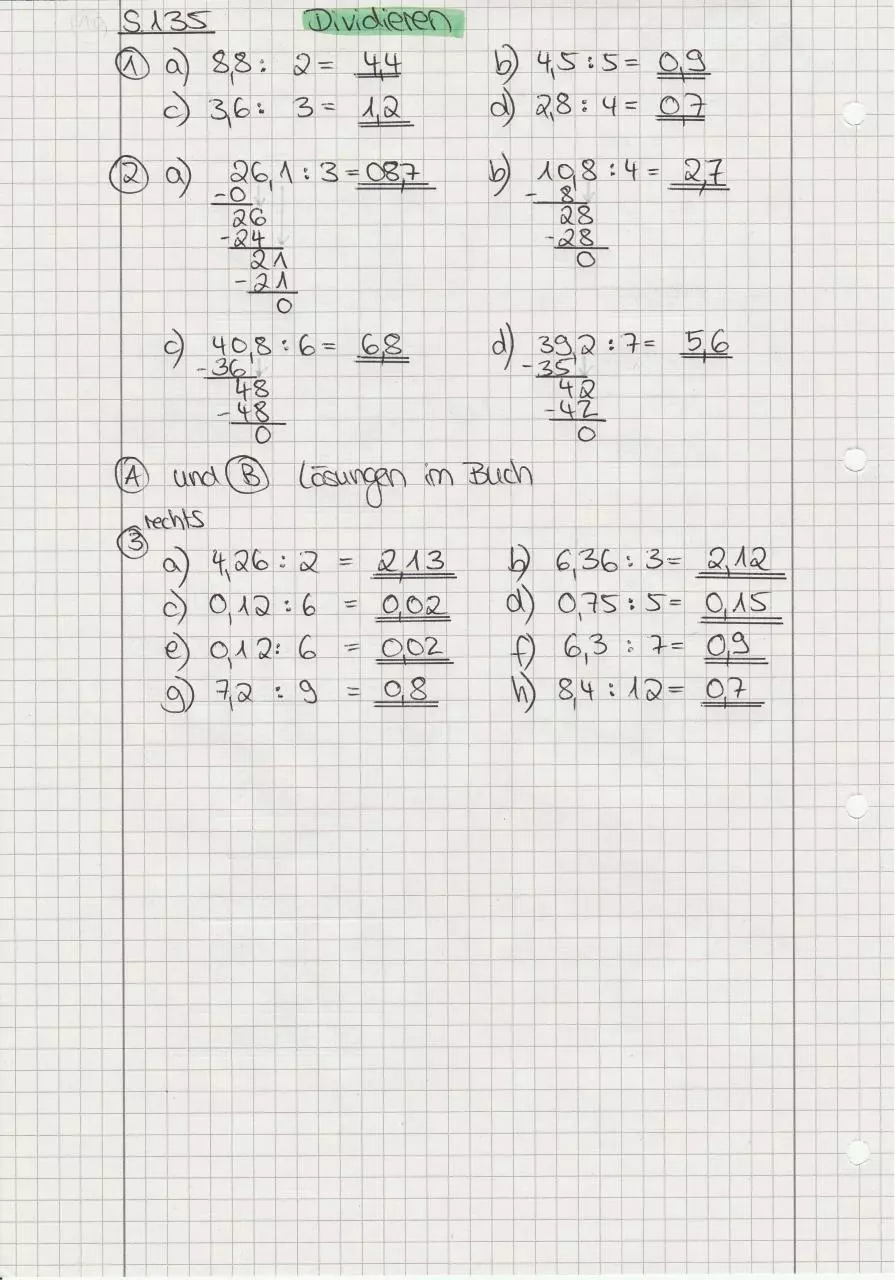 S.135 Dividieren
① a) 8,8 : 2 = 4,4 b) 4,5 : 5 = 0,9
c) 3,6 : 3 = 1,2 d) 2,8 : 4 = 0,7
② a) 26,1 : 3 = 08,7 b) 10,8 : 4 = 2,7
-0 - 8
26 28
-24 -28
21 0
-21
0
c) 40,8 : 6 = 6,8 d) 39,2 : 7 = 5,6
-36 -35
48 42
-48 -42
0 0
Ⓐ und Ⓑ Lösungen im Buch
③ rechts
a) 4,26 : 2 = 2,13 b) 6,36 : 3 = 2,12
c) 0,12 : 6 = 0,02 d) 0,75 : 5 = 0,15
e) 0,12 : 6 = 0,02 f) 6,3 : 7 = 0,9
g) 7,2 : 9 = 0,8 h) 8,4 : 12 = 0,7